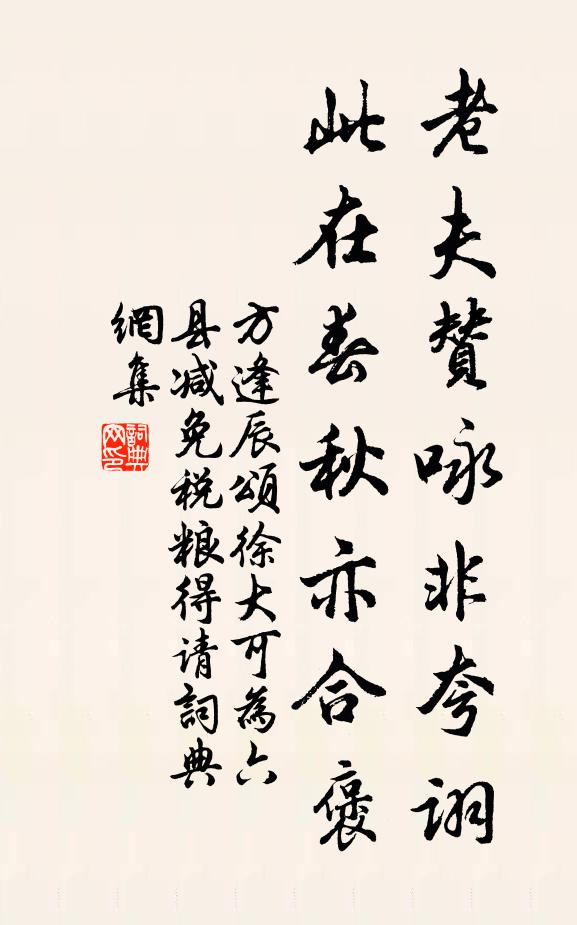 老夫賛咏非夸诩
此在春秋亦合褒
方逢辰頌徐大可為六
县减免税粮得请詞典
網集
詞典
网印